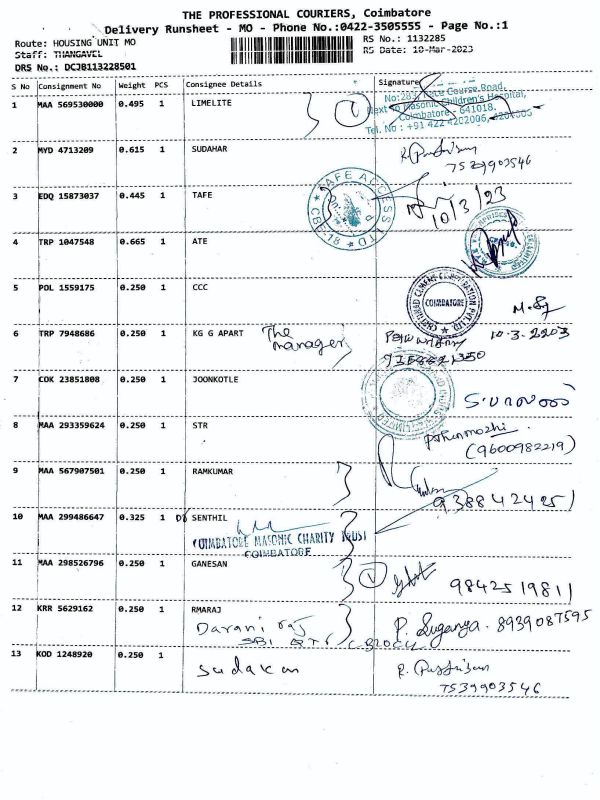 THE PROFESSIONAL COURIERS, Coimbatore
Delivery Runsheet - MO - Phone No.:0422-3505555 - Page No.:1
Route: HOUSING UNIT MO
RS No.: 1132285
Staff: THANGAVEL
RS Date: 10-Mar-2023
DRS No.: DCJB113228501
S No Consignment No Weight PCS Consignee Details Signature
1 MAA 569530000 0.495 1 LIMELITE
Race Course Road,
Next to Masonic Children's Hospital,
Coimbatore - 641018.
Tel. No : +91 422 4202006, 4204006
2 MYD 4713209 0.615 1 SUDAHAR
7539903546
3 EDQ 15873037 0.445 1 TAFE
TAFE ACCESS LTD
CBE-18
10/3/23
4 TRP 1047548 0.665 1 ATE
5 POL 1559175 0.250 1 CCC
COIMBATORE
10.3.2203
6 TRP 7948686 0.250 1 KG G APART The manager
7 COK 23851808 0.250 1 JOONKOTLE
8 MAA 293359624 0.250 1 STR
(9600982219)
9 MAA 567907501 0.250 1 RAMKUMAR
9388424251
10 MAA 299486647 0.325 1 SENTHIL
COIMBATORE MASONIC CHARITY TRUST
COIMBATORE
11 MAA 298526796 0.250 1 GANESAN
9842519811
12 KRR 5629162 0.250 1 RMARAJ
Darani raj
P. Suganya. 8939087595
SBI QTS C BLOCK
13 KOD 1248920 0.250 1
Sudakan
7539903546